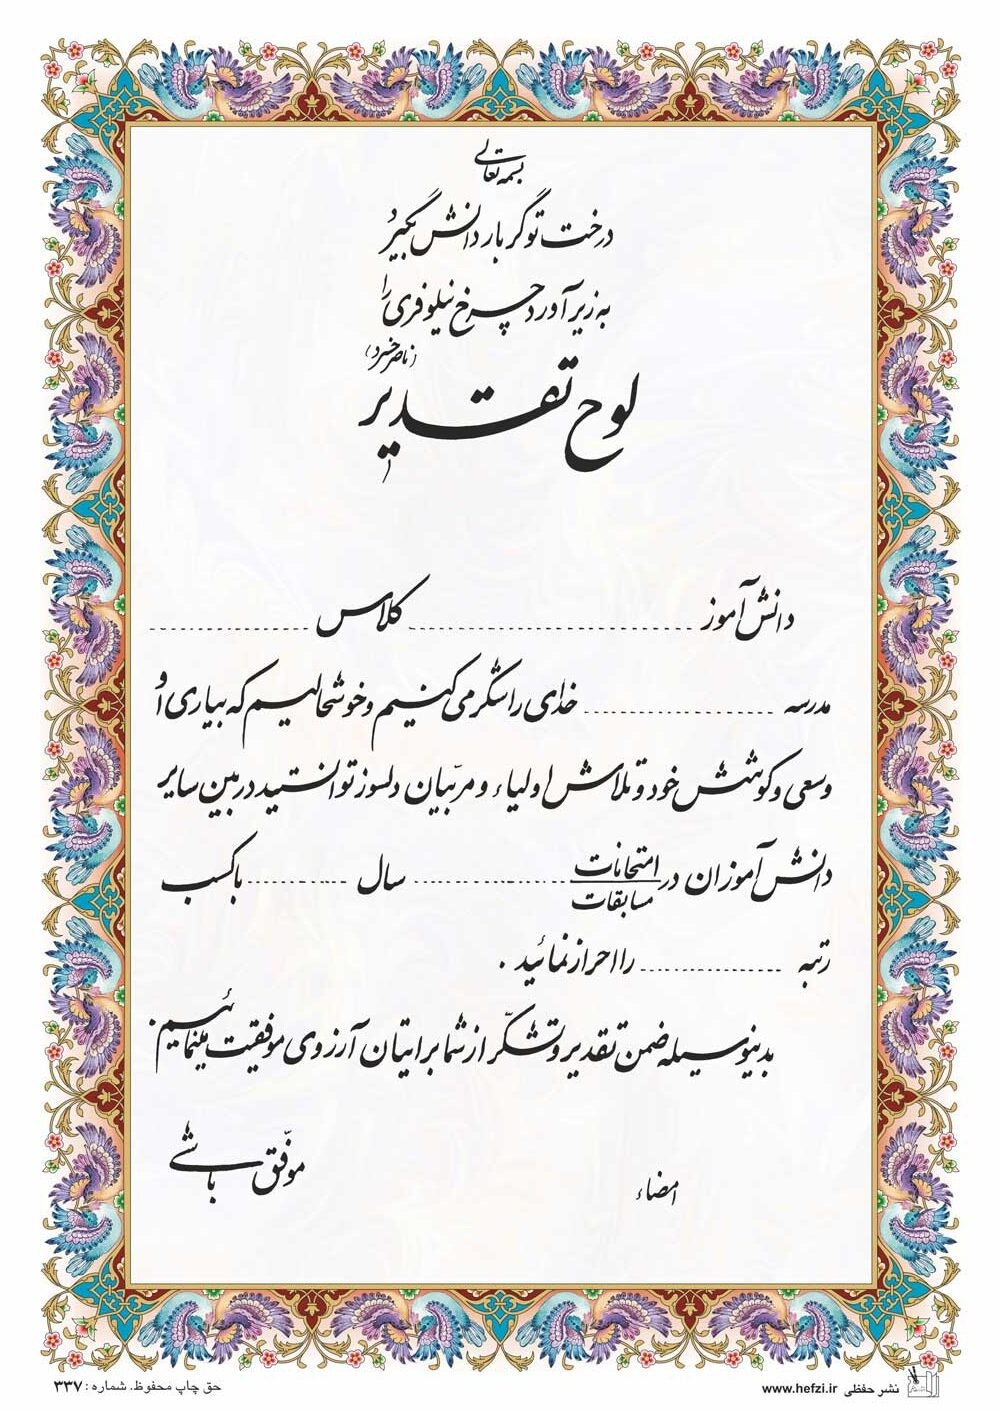 بسمه تعالی
درخت تو گر بار دانش بگیرد
به زیر آورد چرخ نیلوفری را
(ناصرخسرو)
لوح تقدیر
دانش آموز ........................................ کلاس ......................
مدرسه ........................... خدای را شکر می کنیم و خوشحالیم که بیاری او
و سعی و کوشش خود و تلاش اولیاء و مربّیان دلسوز توانستید در بین سایر
دانش آموزان در امتحانات ...................... سال .............. با کسب
مسابقات
رتبه .................... را احراز نمائید .
بدینوسیله ضمن تقدیر و تشکّر از شما برایتان آرزوی موفقیت مینمائیم.
موفّق باشی
امضاء
نشر حفظی www.hefzi.ir
حق چاپ محفوظ. شماره : ۳۳۷